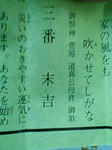 家の風をも
吹かせてしがな
御祭神 菅原道真公母君 御歌
三番 末吉
災いのおきやすい運気に
あります。あなたを始め